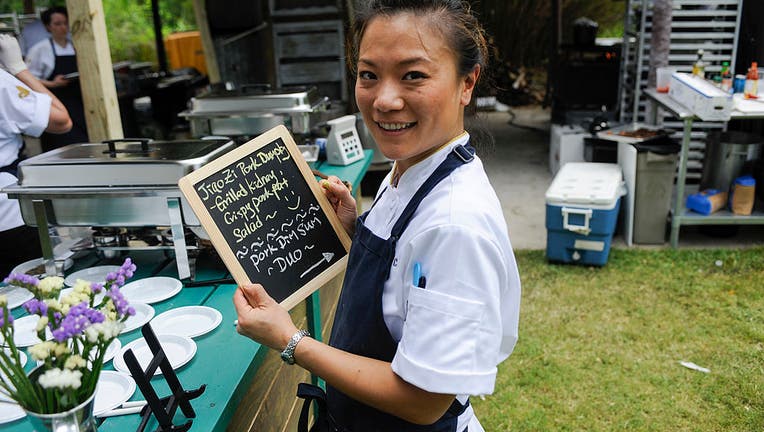 Jiaozi Pork Dumpling
Grilled Kidney
Crispy pork feet
Salad
pork Dim Sum
~ Duo ~